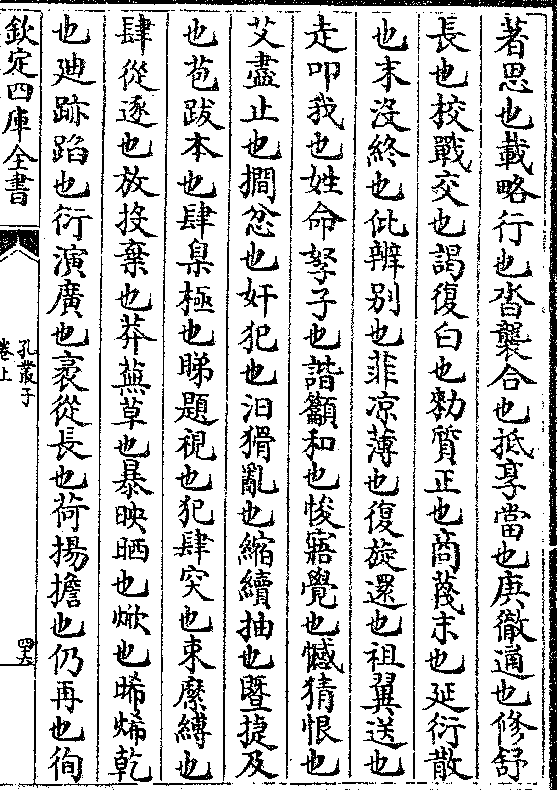 著思也載略行也沓襲合也抵享當也庚徹通也修舒
長也挍戰交也謁復白也勑質正也商蔑末也延衍散
也末沒終也仳辨別也菲凉薄也復旋還也祖翼送也
走叩我也姓命孥子也諧籲和也悛寤覺也憾猜恨也
艾盡止也撊忿也奸犯也汩猾亂也縮續抽也暨捷及
也苞跋本也肆臬極也睇題視也犯肆突也束縻縛也
肆從逐也放投棄也莽蕪草也暴映晒也焮也晞烯乾
也廸跡蹈也衍演廣也袤從長也荷揚擔也仍再也徇
欽定四庫全書
孔叢子
卷上
四六